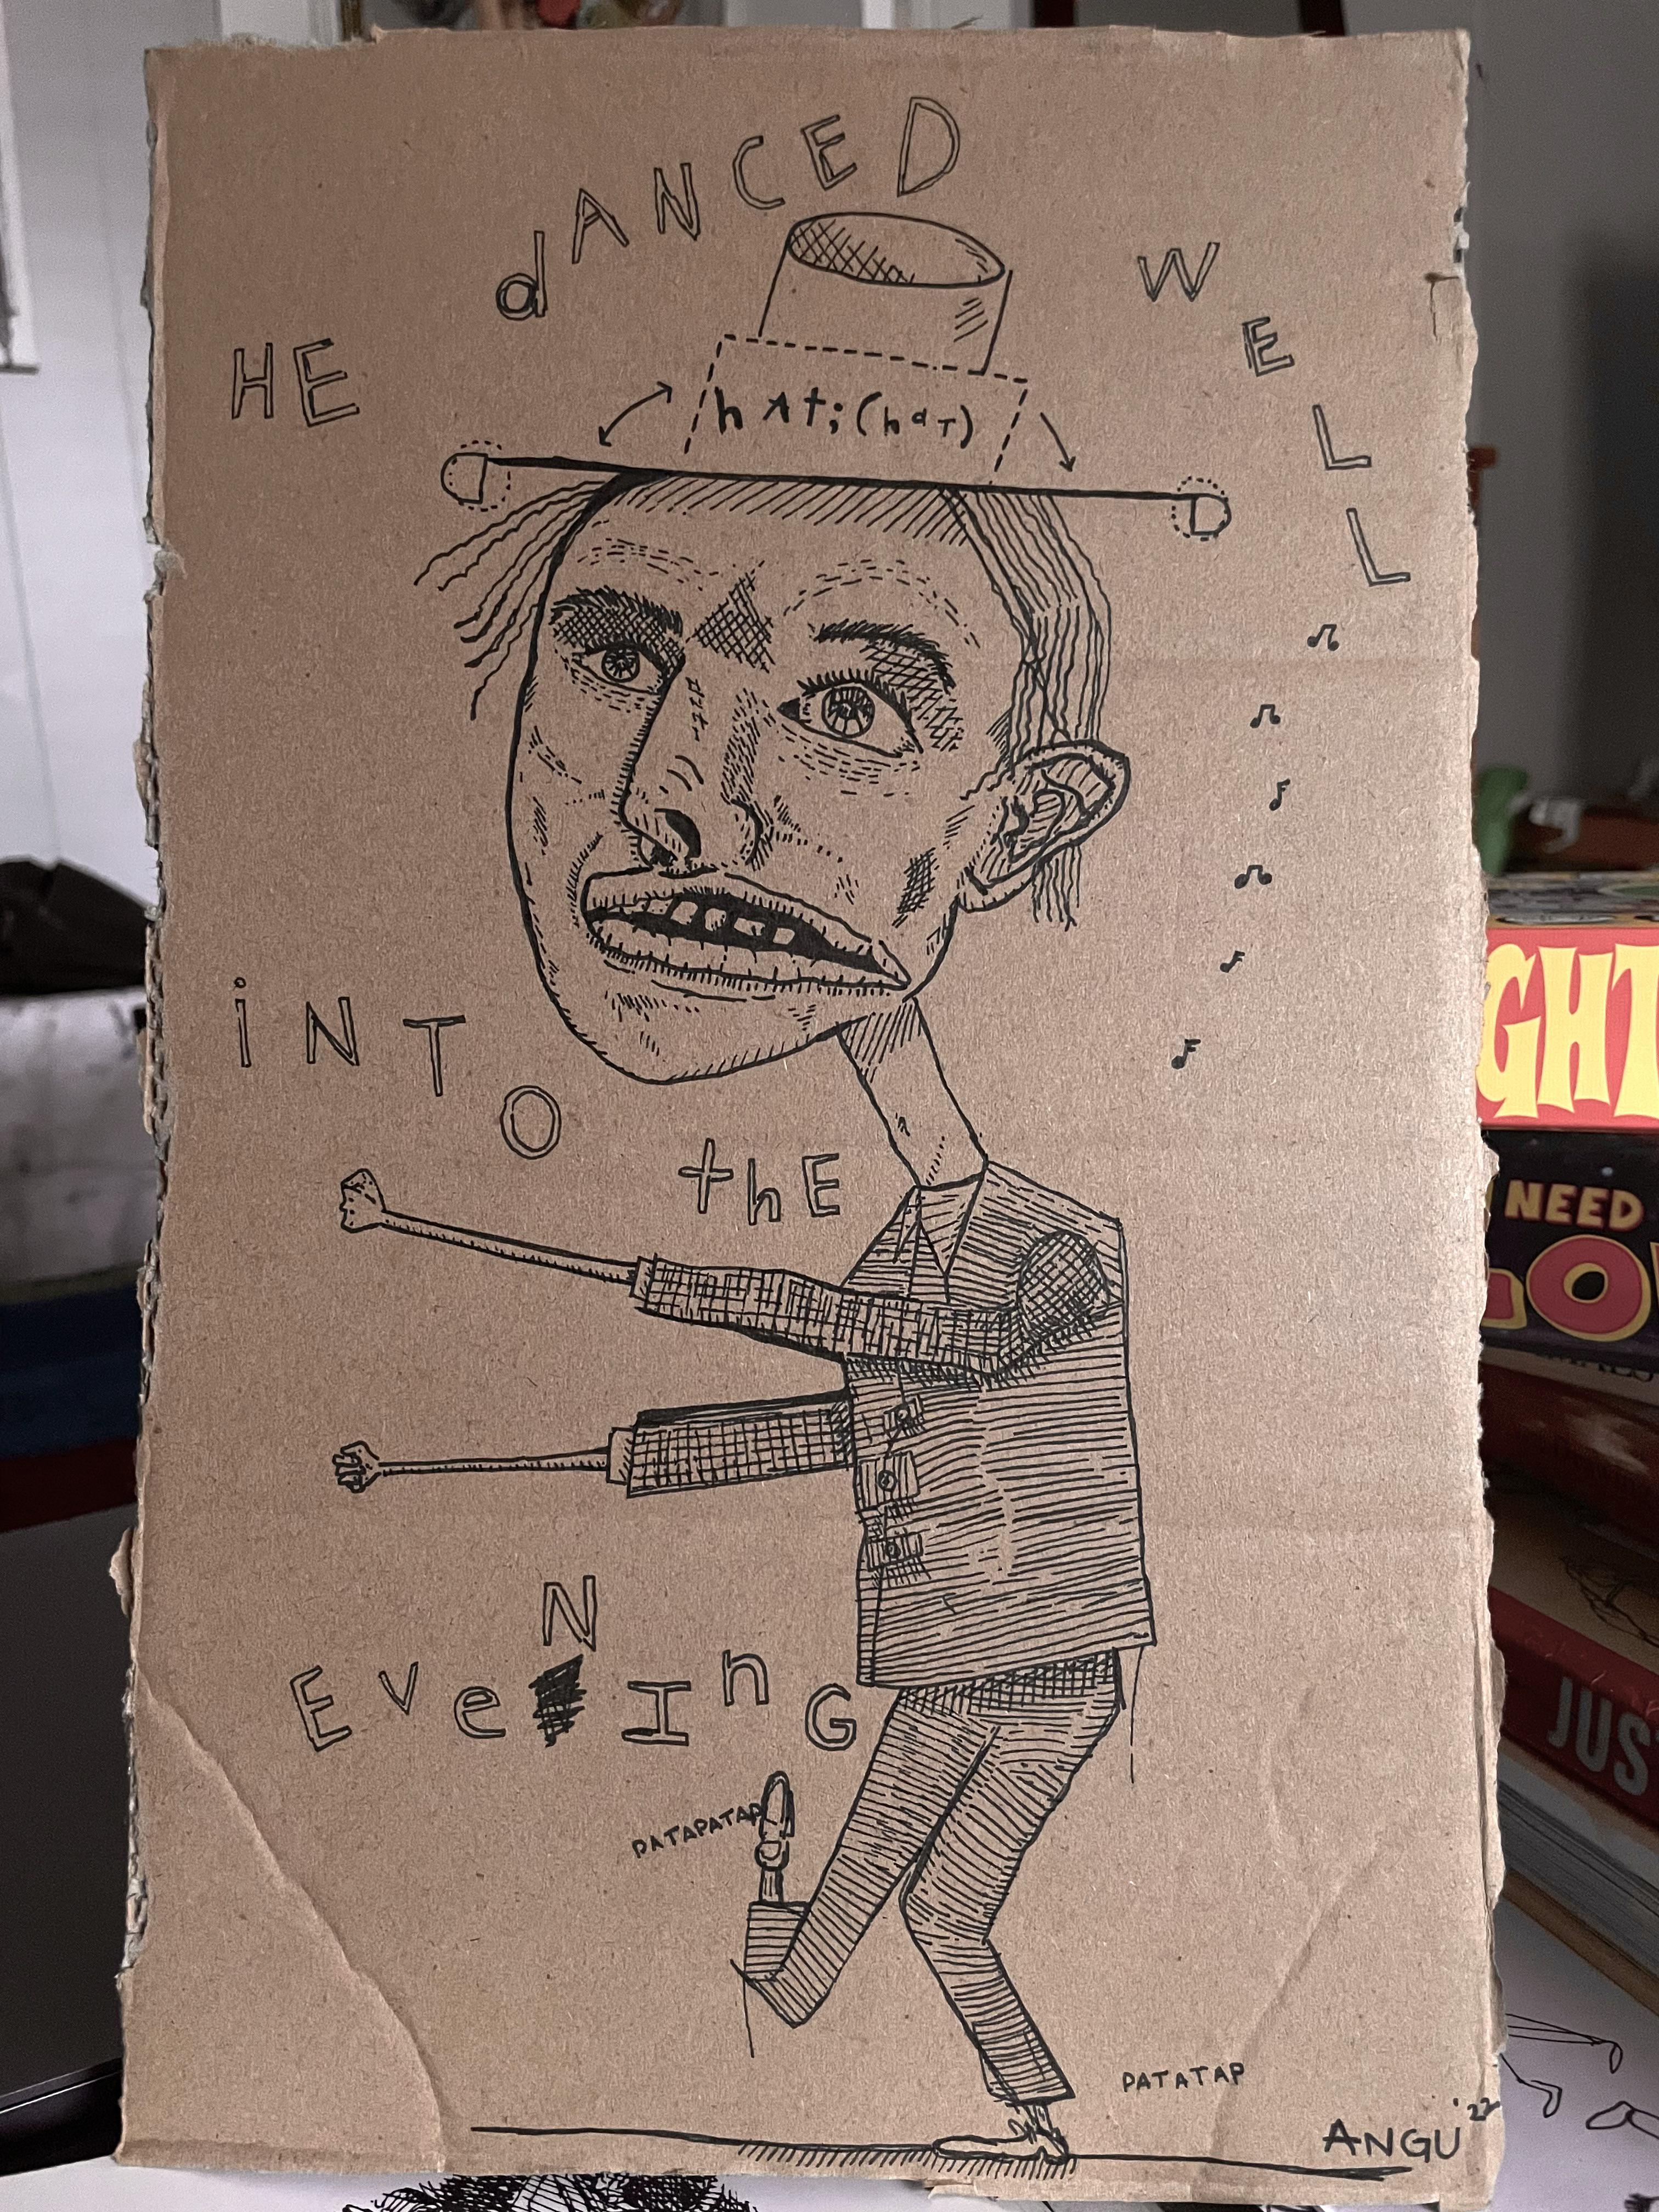 HE dANCED WELL
hAt; (haT)
iNTO thE
EveNInG
PATAPATAP
PATATAP
ANGU '22
GHT
NEED
JUS